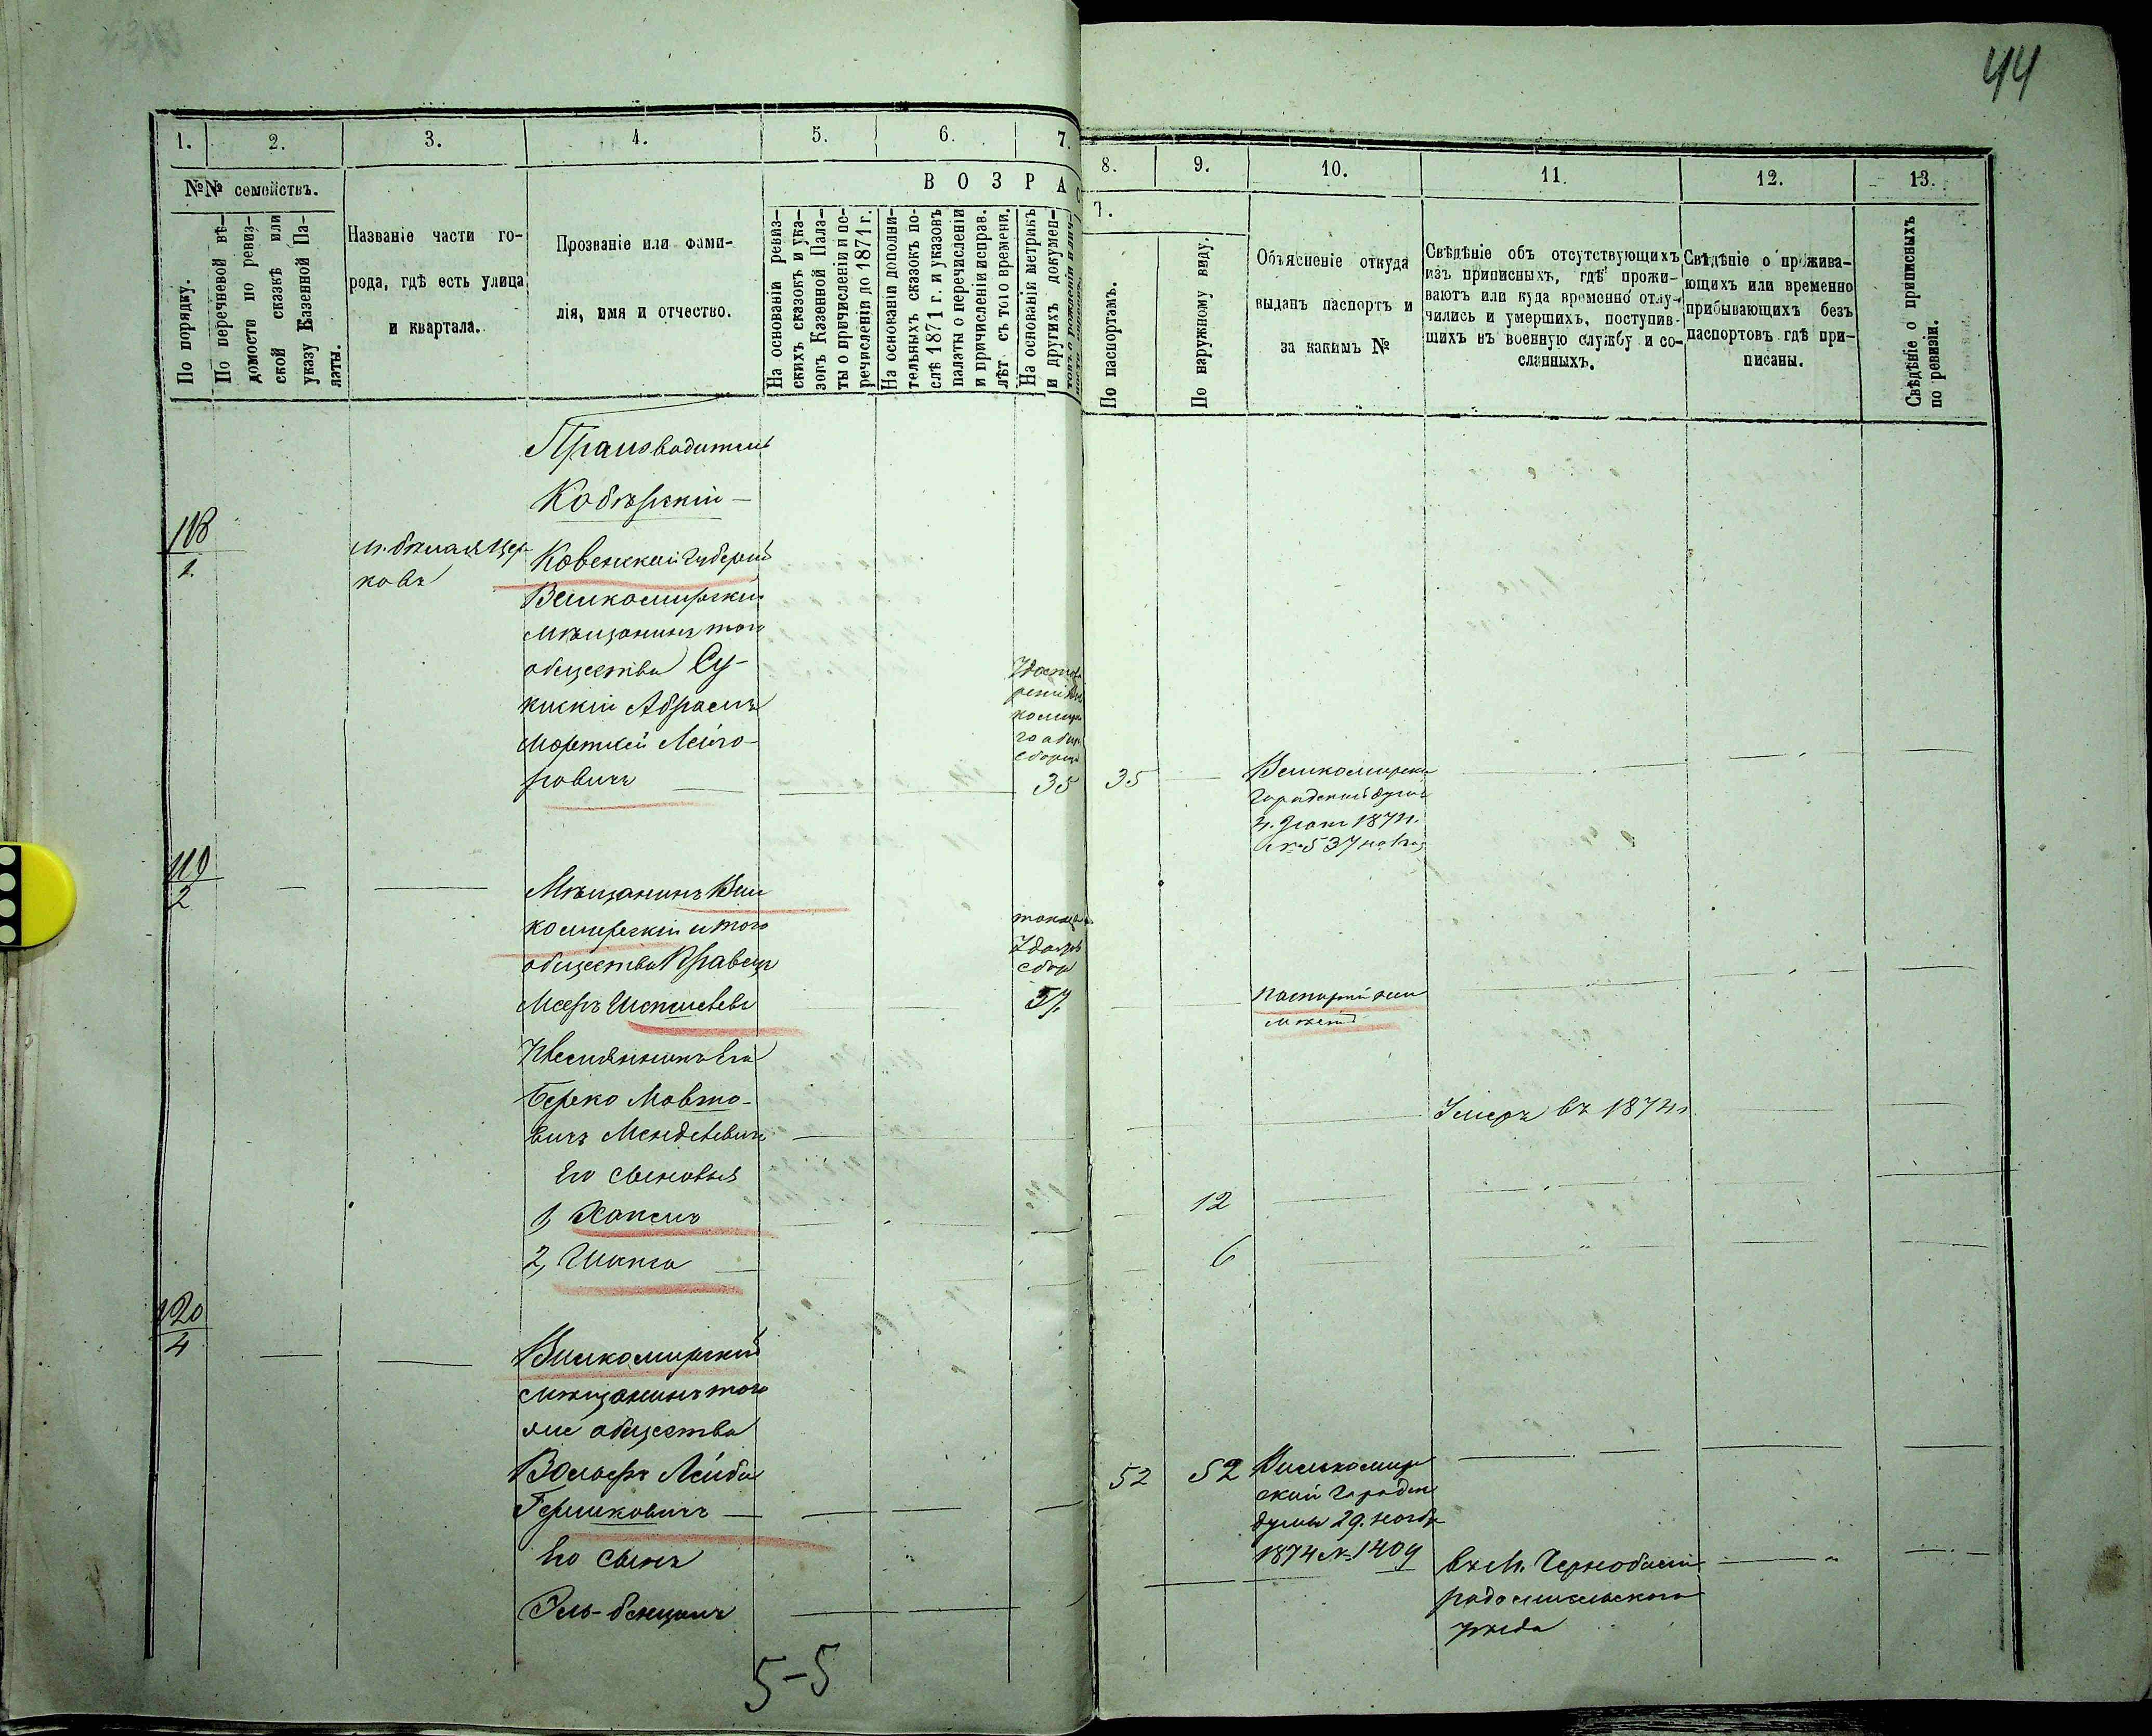 44
1. 2. 3. 4. 5. 6. 7.
8. 9. 10. 11. 12. 13.
№№ семействъ.
По порядку.
По перечневой вѣ-
домости по ревиз-
ской сказкѣ или
указу Казенной Па-
латы.
Названіе части го-
рода, гдѣ есть улица
и квартала.
Прозваніе или фами-
лія, имя и отчество.
В О З Р А С
На основаніи ревиз-
скихъ сказокъ и ука-
зовъ Казенной Пала-
ты о причисленіи и пе-
речисленіи до 1871 г.
На основаніи дополни-
тельныхъ сказокъ по-
слѣ 1871 г. и указовъ
палаты о перечисленіи
и причисленіи исправ.
лѣт съ того времени.
На основаніи метрикъ
и другихъ докумен-
Т.
По паспортамъ.
По наружному виду.
Объясненіе откуда
выданъ паспортъ и
за какимъ №
Свѣдѣніе объ отсутствующихъ
изъ приписныхъ, гдѣ прожи-
ваютъ или куда временно отлу-
чились и умершихъ, поступив-
шихъ въ военную службу и со-
сланныхъ.
Свѣдѣніе о прожива-
ющихъ или временно
прибывающихъ безъ
паспортовъ гдѣ при-
писаны.
Свѣдѣніе о приписныхъ
по ревизіи.
Производитель
Кобѣрскій
118
1.
м. Бѣлая Цер-
ковь
Ковенской Губерніи
Вилкомирскій
мѣщанинъ того
общества Су-
кискій Абрамъ
Морткей Лейзо-
ровичъ
35 35
Вилкомирской
Городской Думы
1874.
№ 537
119
2
Мѣщанинъ Вил
комирскій и того
общества Кравецъ
Мееръ
37
паспортъ не
имѣетъ
Племянникъ Его
Берко Мовшо-
вичъ Менделевичъ
Умеръ въ 1874
Его сыновья
1, Хаимъ
12
2, Шапса
6
120
4
Вилкомирскій
мѣщанинъ того
же общества
Вольфъ Лейба
Гершковичъ
52 52
Вилькомир
ской Городск
думы 29. ноябр
1874 № 1409
Его сынъ
Эль-бенцинъ
въ М. Чернобыли
радомысльского
уѣзда
5-5